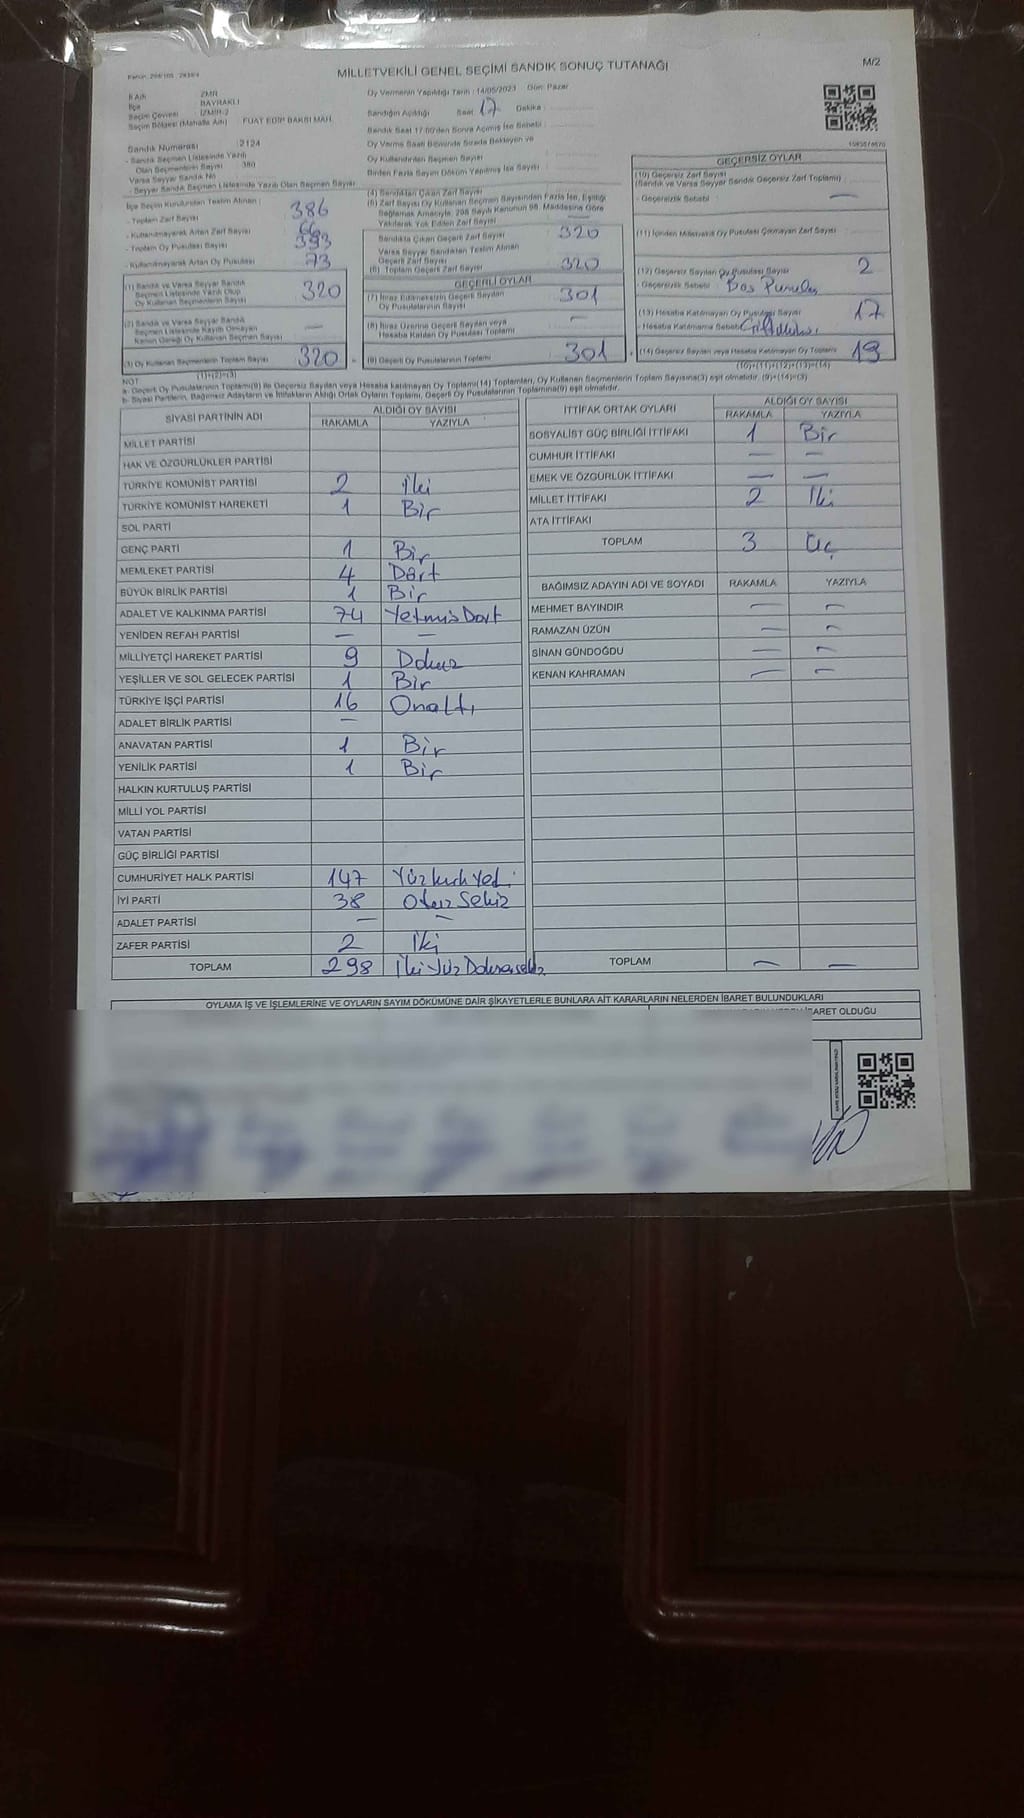 MİLLETVEKİLİ GENEL SEÇİMİ SANDIK SONUÇ TUTANAĞI
M/2
İl Adı
İlçe BAYRAKLI
Seçim Çevresi İZMİR-2
Seçim Bölgesi (Mahalle Adı) FUAT EDİP BAKSI MAH.
Sandık Numarası :2124
- Sandık Seçmen Listesinde Yazılı
Olan Seçmenlerin Sayısı : 380
Varsa Seyyar Sandık No
- Seyyar Sandık Seçmen Listesinde Yazılı Olan Seçmen Sayısı
Oy Vermenin Yapıldığı Tarih : 14/05/2023 Gün: Pazar
Sandığın Açıldığı Saat : 17 Dakika :
Sandık Saat 17.00'den Sonra Açılmış İse Sebebi :
Oy Verme Saati Bitiminde Sırada Bekleyen ve
Oy Kullandırılan Seçmen Sayısı
Birden Fazla Sayım Döküm Yapılmış İse Sayısı :
İlçe Seçim Kurulundan Teslim Alınan :
- Toplam Zarf Sayısı 386
- Kullanılmayarak Artan Zarf Sayısı 66
- Toplam Oy Pusulası Sayısı 393
- Kullanılmayarak Artan Oy Pusulası 73
(1) Sandık ve Varsa Seyyar Sandık
Seçmen Listesinde Yazılı Olup
Oy Kullanan Seçmenlerin Sayısı 320
(2) Sandık ve Varsa Seyyar Sandık
Seçmen Listesinde Kaydı Olmayan
Kanun Gereği Oy Kullanan Seçmen Sayısı —
(3) Oy Kullanan Seçmenlerin Toplam Sayısı 320
(1)+(2)=(3)
(4) Sandıktan Çıkan Zarf Sayısı
(5) Zarf Sayısı Oy Kullanan Seçmen Sayısından Fazla İse, Eşitliği
Sağlamak Amacıyla, 298 Sayılı Kanunun 98. Maddesine Göre
Yakılarak Yok Edilen Zarf Sayısı —
Sandıkta Çıkan Geçerli Zarf Sayısı 320
Varsa Seyyar Sandıktan Teslim Alınan
Geçerli Zarf Sayısı
(6) Toplam Geçerli Zarf Sayısı 320
GEÇERLİ OYLAR
(7) İtiraz Edilmeksizin Geçerli Sayılan
Oy Pusulalarının Sayısı 301
(8) İtiraz Üzerine Geçerli Sayılan veya
Hesaba Katılan Oy Pusulası Toplamı —
(9) Geçerli Oy Pusulalarının Toplamı 301
GEÇERSİZ OYLAR
(10) Geçersiz Zarf Sayısı
(Sandık ve Varsa Seyyar Sandık Geçersiz Zarf Toplamı)
- Geçersizlik Sebebi —
(11) İçinden Milletvekili Oy Pusulası Çıkmayan Zarf Sayısı
(12) Geçersiz Sayılan Oy Pusulası Sayısı 2
- Geçersizlik Sebebi : Boş
(13) Hesaba Katılmayan Oy Pusulası Sayısı 17
- Hesaba Katılmama Sebebi
(14) Geçersiz Sayılan veya Hesaba Katılmayan Oy Toplamı 19
(10)+(11)+(12)+(13)=(14)
NOT:
a- Geçerli Oy Pusulalarının Toplamı(9) ile Geçersiz Sayılan veya Hesaba katılmayan Oy Toplamı(14) Toplamları, Oy Kullanan Seçmenlerin Toplam Sayısına(3) eşit olmalıdır. (9)+(14)=(3)
b- Siyasi Partilerin, Bağımsız Adayların ve İttifakların Aldığı Ortak Oyların Toplamı, Geçerli Oy Pusulalarının Toplamına(9) eşit olmalıdır.
SİYASİ PARTİNİN ADI ALDIĞI OY SAYISI
RAKAMLA YAZIYLA
MİLLET PARTİSİ
HAK VE ÖZGÜRLÜKLER PARTİSİ
TÜRKİYE KOMÜNİST PARTİSİ 2 iki
TÜRKİYE KOMÜNİST HAREKETİ 1 Bir
SOL PARTİ
GENÇ PARTİ 1 Bir
MEMLEKET PARTİSİ 4 Dört
BÜYÜK BİRLİK PARTİSİ 1 Bir
ADALET VE KALKINMA PARTİSİ 74 Yetmiş Dört
YENİDEN REFAH PARTİSİ — —
MİLLİYETÇİ HAREKET PARTİSİ 9 Dokuz
YEŞİLLER VE SOL GELECEK PARTİSİ 1 Bir
TÜRKİYE İŞÇİ PARTİSİ 16 Onaltı
ADALET BİRLİK PARTİSİ —
ANAVATAN PARTİSİ 1 Bir
YENİLİK PARTİSİ 1 Bir
HALKIN KURTULUŞ PARTİSİ
MİLLİ YOL PARTİSİ
VATAN PARTİSİ
GÜÇ BİRLİĞİ PARTİSİ
CUMHURİYET HALK PARTİSİ 147 Yüz kırk Yedi
İYİ PARTİ 38 Otuz Sekiz
ADALET PARTİSİ — —
ZAFER PARTİSİ 2 İki
TOPLAM 298 İki Yüz Doksan sekiz
İTTİFAK ORTAK OYLARI ALDIĞI OY SAYISI
RAKAMLA YAZIYLA
SOSYALİST GÜÇ BİRLİĞİ İTTİFAKI 1 Bir
CUMHUR İTTİFAKI — —
EMEK VE ÖZGÜRLÜK İTTİFAKI — —
MİLLET İTTİFAKI 2 İki
ATA İTTİFAKI
TOPLAM 3 Üç
BAĞIMSIZ ADAYIN ADI VE SOYADI RAKAMLA YAZIYLA
MEHMET BAYINDIR — —
RAMAZAN ÜZÜN — —
SİNAN GÜNDOĞDU — —
KENAN KAHRAMAN — —
TOPLAM — —
OYLAMA İŞ VE İŞLEMLERİNE VE OYLARIN SAYIM DÖKÜMÜNE DAİR ŞİKAYETLERLE BUNLARA AİT KARARLARIN NELERDEN İBARET BULUNDUKLARI
OLDUĞU